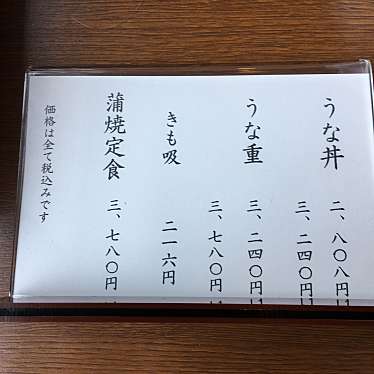 うな丼 二、八〇八円
三、二四〇円
うな重 三、二四〇円
三、七八〇円
きも吸 二一六円
蒲焼定食 三、七八〇円
価格は全て税込みです